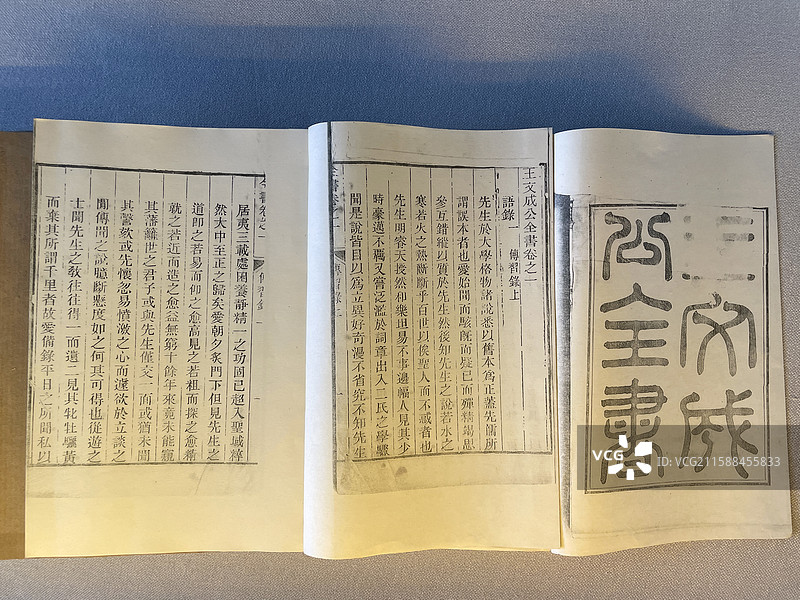 王文成
公全書
王文成公全書卷之一
語錄一 傳習錄上
先生於大學格物諸說悉以舊本為正蓋先儒所
謂誤本者也愛始聞而駭既而疑已而殫精竭思
參互錯綜以質於先生然後知先生之說若水之
寒若火之熱斷斷乎百世以俟聖人而不惑者也
先生明睿天授然和樂坦易不事邊幅人見其少
時豪邁不羈又嘗泛濫於詞章出入二氏之學驟
聞是說皆目以為立異好奇漫不省究不知先生
居夷三載處困養靜精一之功固已超入聖域粹
然大中至正之歸矣愛朝夕炙門下但見先生之
道即之若易而仰之愈高見之若粗而探之愈精
就之若近而造之愈益無窮十餘年來竟未能窺
其藩籬世之君子或與先生僅交一面或猶未聞
其謦欬或先懷忽易憤激之心而遽欲於立談之
間傳聞之說臆斷懸度如之何其可得也從遊之
士聞先生之教往往得一而遺二見其牝牡驪黃
而棄其所謂千里者故愛備錄平日之所聞私以
VCG
VCG211588455833